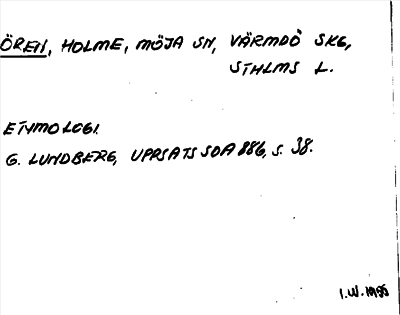 ÖREN, HOLME, MÖJA SN, VÄRMDÖ SKG,
STHLMS L.
ETYMOLOGI.
G. LUNDBERG, UPPSATS SOA 886, S. 38.
I.W. 1955